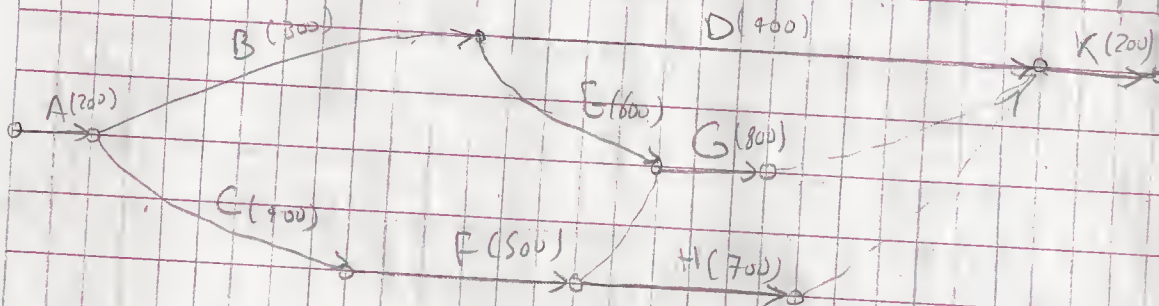 B (300)
D (400)
K (200)
A (200)
E (600)
G (800)
C (400)
F (500)
H (700)